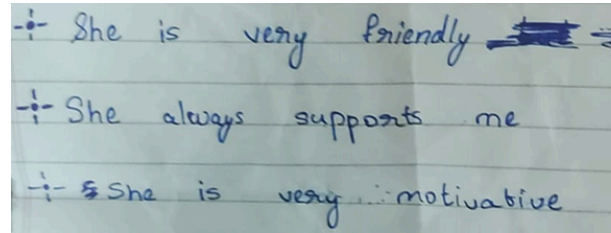 She is very friendly
She always supports me
She is very motivative